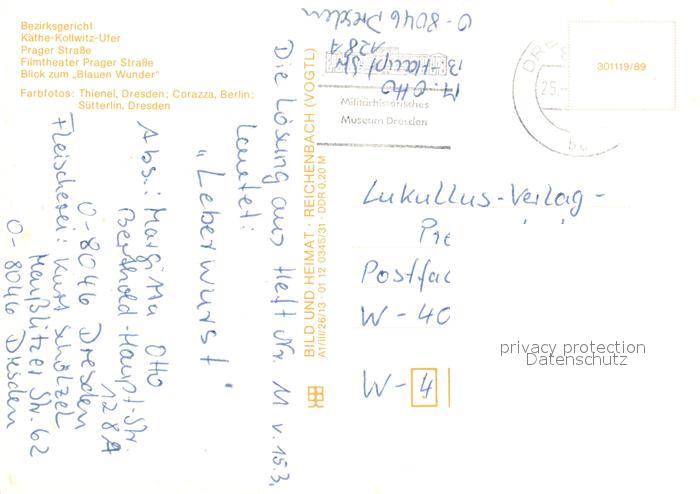 Bezirksgericht
Käthe-Kollwitz-Ufer
Prager Straße
Filmtheater Prager Straße
Blick zum „Blauen Wunder"
Farbfotos: Thienel, Dresden; Corazza, Berlin;
Sütterlin, Dresden
Die Lösung aus Heft Nr. 11 v. 15.3.
lautet:
„Leberwurst"
Abs.: Margitta Otto
Berthold-Haupt-Str.
128A
O-8046 Dresden
Fleischerei: Kurt Schölzel
Maußlitzer Str. 62
O-8046 Dresden
BILD UND HEIMAT · REICHENBACH (VOGTL)
A1/III/26/13 01 12 0345/31 · DDR 0,20 M
M. Otto
B.-Haupt-Str
128A
O-8046 Dresden
Militärhistorisches
Museum Dresden
301119/89
Lukullus-Verlag-
Postfac
W-40
W-4
privacy protection
Datenschutz